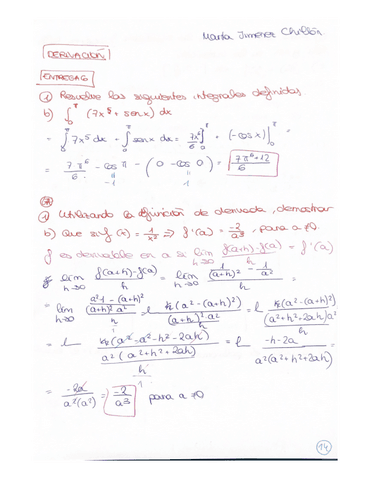 Marta Jimenez Chillón
DERIVACIÓN
ENTREGA 6
① Resuelve las siguientes integrales definidas
b) ∫₀^π (7x⁵ + sen x) dx
= ∫₀^π 7x⁵ dx + ∫₀^π sen x dx = 7x⁶/6 ]₀^π + (-cos x) |₀^π =
= 7·π⁶/6 - cos π - (0 - cos 0) = 7π⁶+12/6
-1 1
① Utilizando la definición de derivada, demostrar
b) que si f(x) = 1/x² ⇒ f'(a) = -2/a³, para a ≠ 0
f es derivable en a si lim h→0 f(a+h)-f(a)/h = f'(a)
lim h→0 f(a+h)-f(a)/h = lim h→0 (1/(a+h)² - 1/a²)/h =
= lim h→0 (a²·1-(a+h)²/(a+h)² a²)/h
(a²-(a+h)²)
(a+h)² a²
h
(a²-(a+h)²)
(a²+h²+2ah)a²
h
(a²-a²-h²-2ah)
a²(a²+h²+2ah)
h
-h-2a
a²(a²+h²+2ah)
= -2a/a²(a²) = -2/a³ para a ≠ 0
14